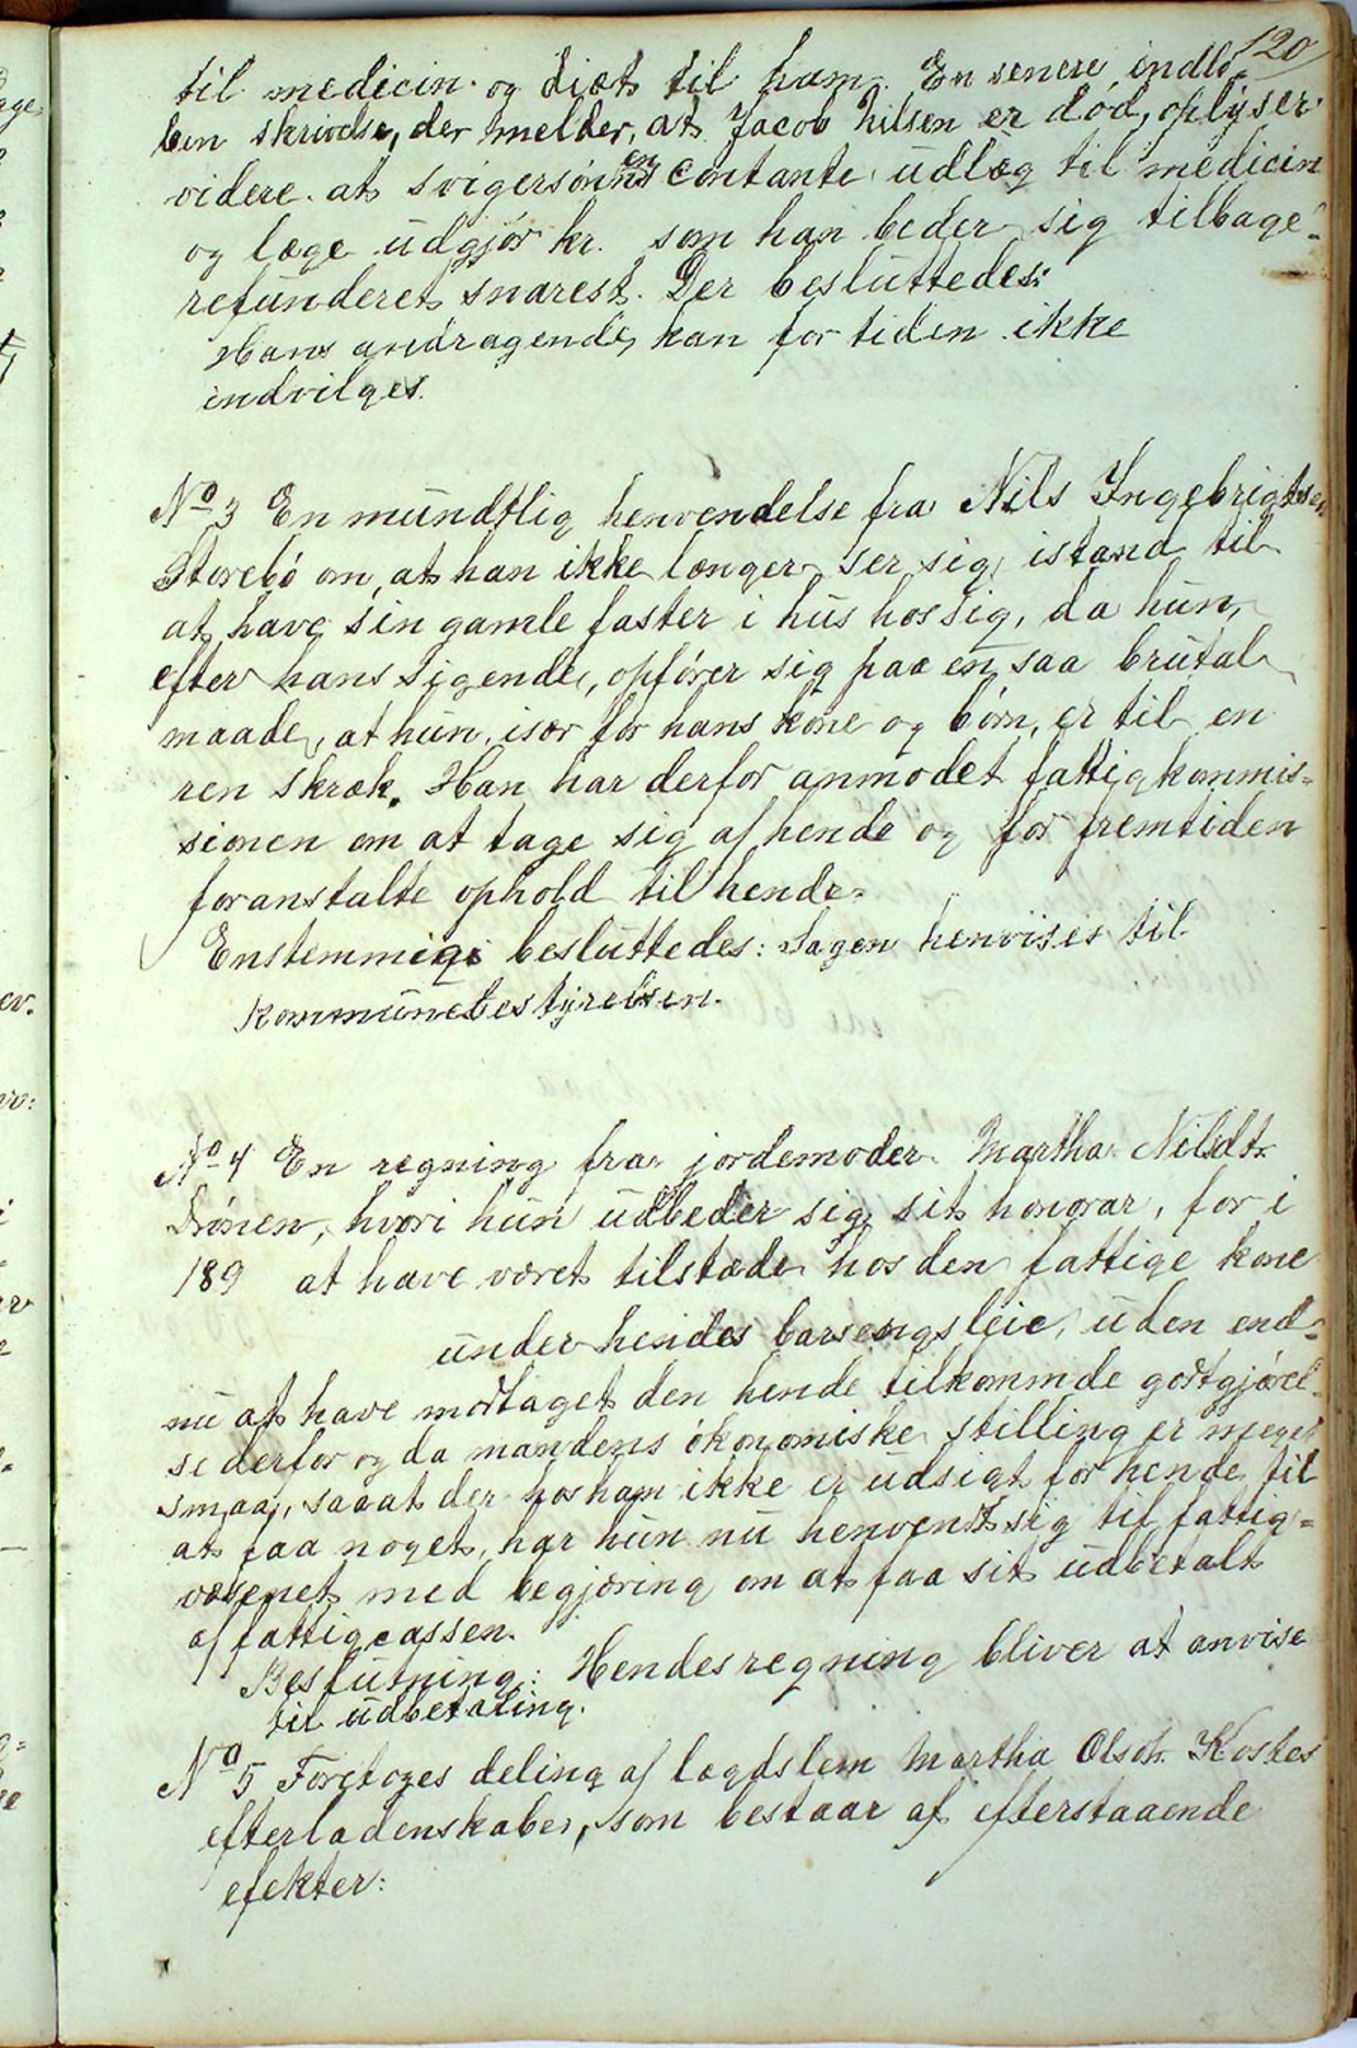 120
til medicin og diæt til ham. En senere indlø-
ben skrivelse, der melder, at Jacob Nilsen er død, oplyser
videre at svigersønnens contante udlæg til medicin
og læge udgjør kr. som han beder sig tilbage-
refunderet snarest. Der besluttedes:
Hans andragende kan for tiden ikke
indvilges.
No 3 En mundtlig henvendelse fra Nils Ingebrigtsen
Storebø om, at han ikke længer ser sig istand til
at have sin gamle faster i hus hos sig, da hun,
efter hans sigende, opfører sig paa en saa brutal
maade, at hun, især for hans kone og børn, er til en
ren skræk. Han har derfor anmodet fattigkommis-
sionen om at tage sig af hende og for fremtiden
foranstalte ophold til hende.
Enstemmig besluttedes: Sagen henvises til
kommunebestyrelsen.
No 4 En regning fra jordemoder Martha Nilsdt.
Drønen, hvori hun udbeder sig sit honorar, for i
189 at have været tilstæde hos den fattige kone
under hendes barsengsleie, uden end-
nu at have modtaget den hende tilkommde godtgjørel-
se derfor og da mandens økonomiske stilling er meget
smaa, saa at der hos ham ikke er udsigt for hende til
at faa noget, har hun nu henvendt sig til fattig-
væsenet med begjæring om at faa sit udbetalt
af fattigcassen.
Beslutning: Hendes regning bliver at anvise
til udbetaling.
No 5 Foretoges deling af lægdslem Martha Olsdt. Kostes
efterladenskaber, som bestaar af efterstaaende
efekter: